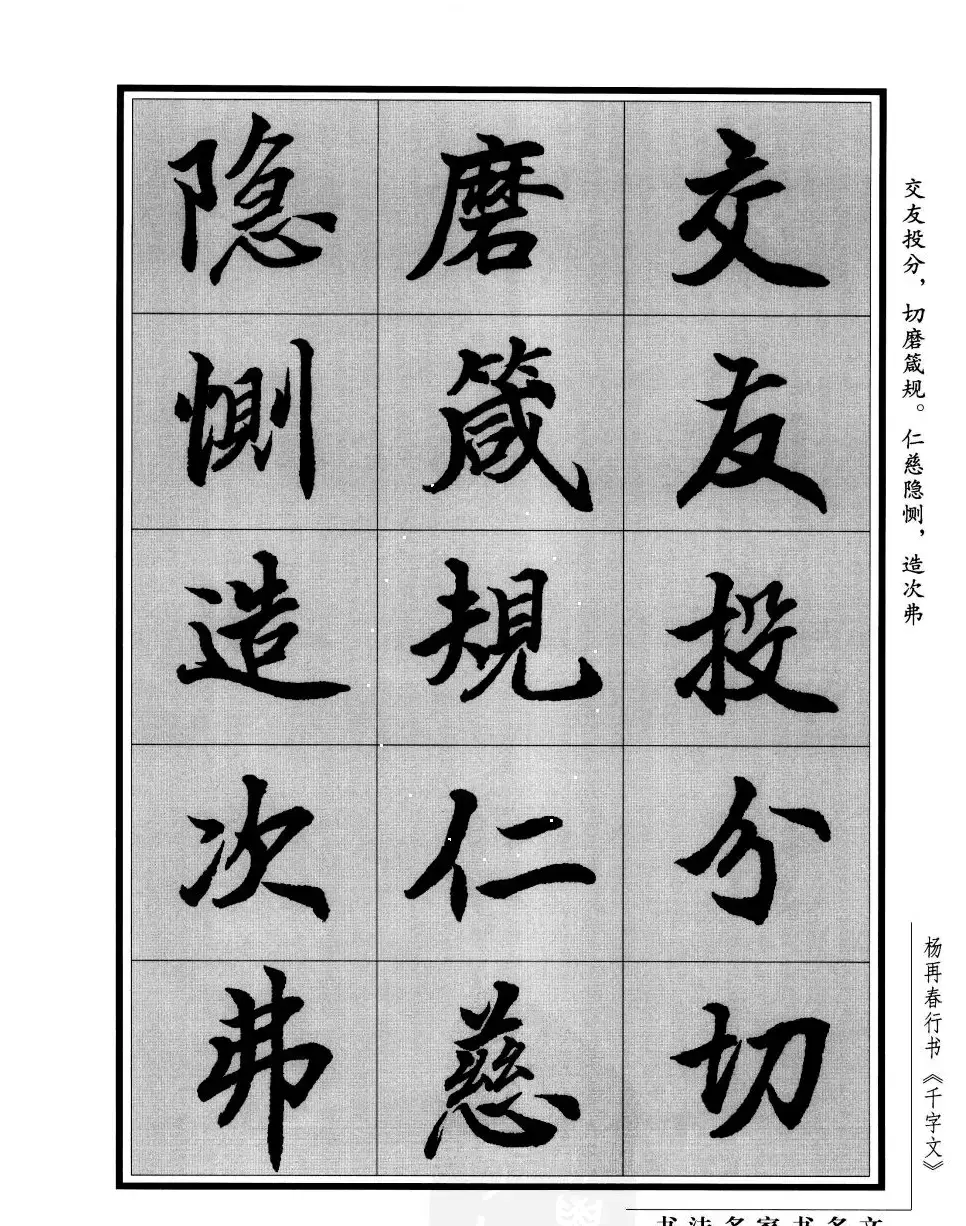 交友投分切
磨箴規仁慈
隐恻造次弗
交友投分，切磨箴规。仁慈隐恻，造次弗
杨再春行书《千字文》